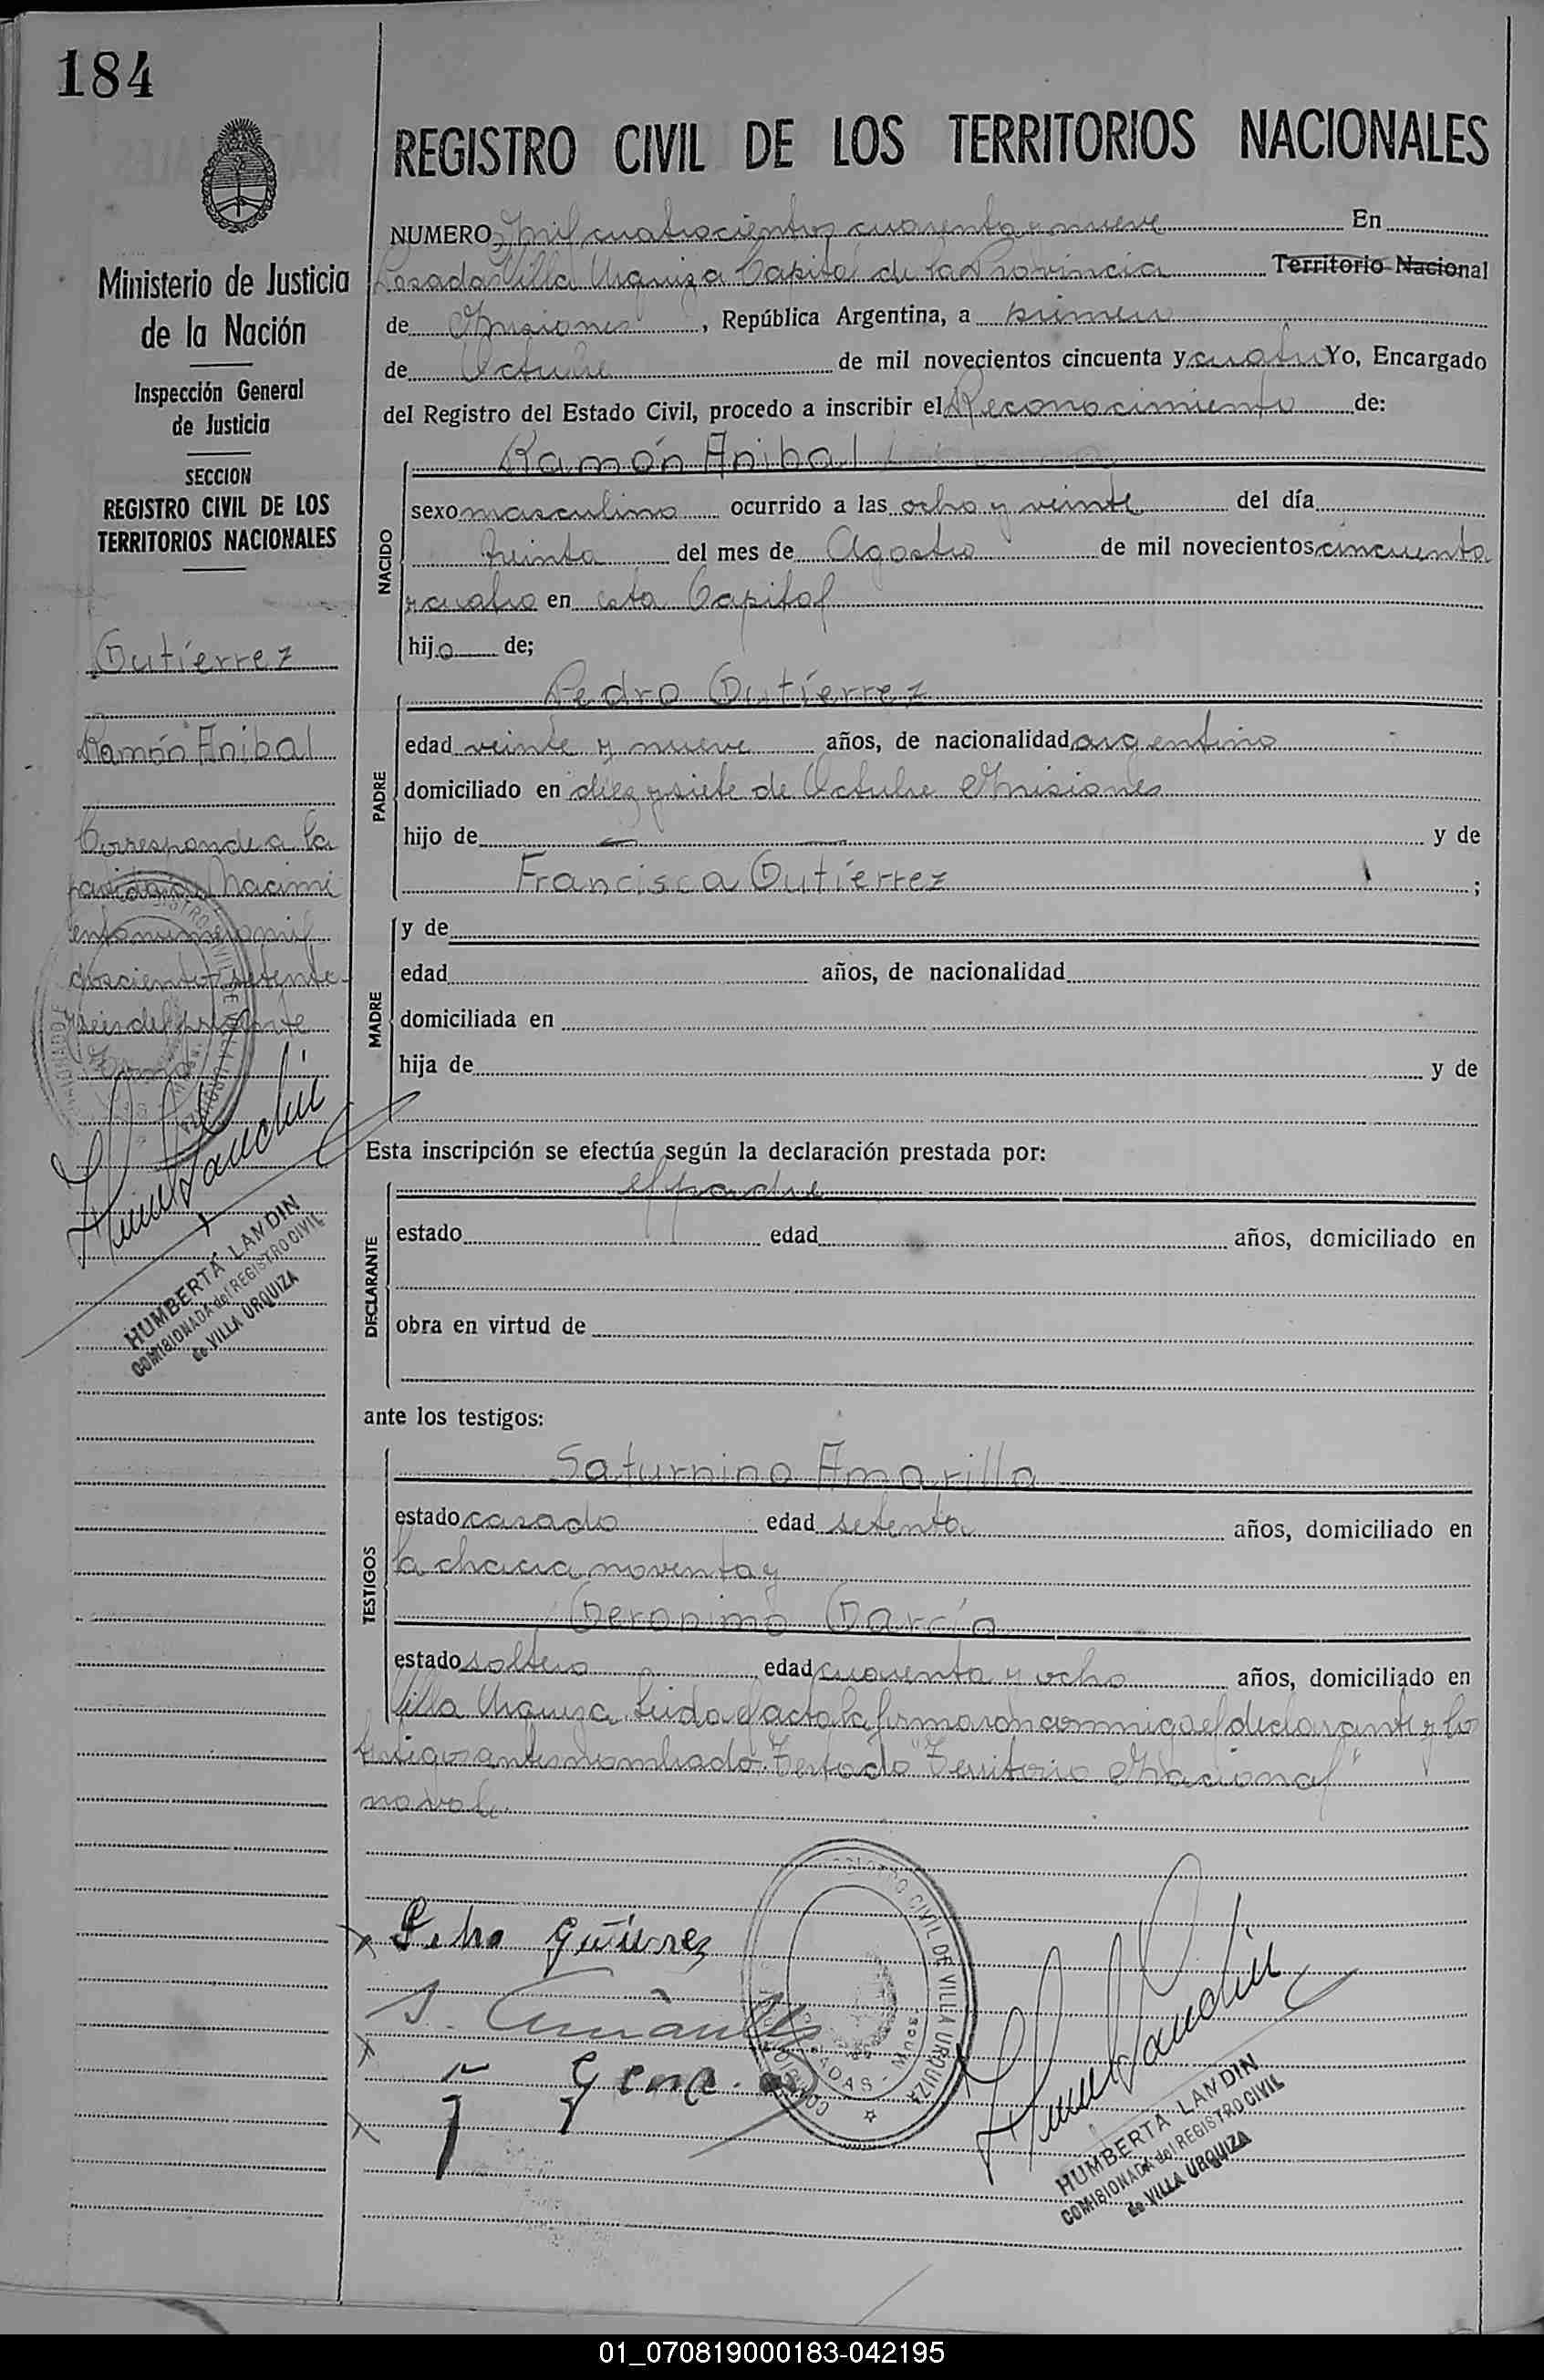 184
Ministerio de Justicia
de la Nación
Inspección General
de Justicia
SECCION
REGISTRO CIVIL DE LOS
TERRITORIOS NACIONALES
Gutiérrez
Ramón Anibal
Corresponde a la
partida de Nacimi
ento numero mil
doscientos setenta
y seis del presente
Tomo
HUMBERTA LANDIN
COMISIONADA del REGISTRO CIVIL
de VILLA URQUIZA
REGISTRO CIVIL DE LOS TERRITORIOS NACIONALES
NUMERO Mil cuatrocientos cuarenta y nueve En
Posadas Villa Urquiza Capital de la Provincia Territorio Nacional
de Misiones, República Argentina, a primero
de Octubre de mil novecientos cincuenta y cuatro Yo, Encargado
del Registro del Estado Civil, procedo a inscribir el Reconocimiento de:
NACIDO
Ramón Anibal
sexo masculino ocurrido a las ocho y veinte del día
treinta del mes de Agosto de mil novecientos cincuenta
y cuatro en esta Capital
hijo de;
PADRE
Pedro Gutiérrez
edad veinte y nueve años, de nacionalidad argentino
domiciliado en diez y siete de Octubre Misiones
hijo de — — y de
Francisca Gutiérrez ;
MADRE
y de
edad años, de nacionalidad
domiciliada en
hija de y de
Esta inscripción se efectúa según la declaración prestada por:
DECLARANTE
el padre
estado edad años, domiciliado en
obra en virtud de
ante los testigos:
TESTIGOS
Saturnino Amarilla
estado casado edad setenta años, domiciliado en
la chacra noventa y
Geronimo García
estado soltero edad cuarenta y ocho años, domiciliado en
Villa Urquiza. Leida el acta la firmaron conmigo el declarante y los
testigos antes nombrados. Testado "Territorio Nacional"
no vale.
Pedro Gutierrez
S. Amarilla
REGISTRO CIVIL DE VILLA URQUIZA
POSADAS - Mnes
HUMBERTA LANDIN
COMISIONADA del REGISTRO CIVIL
de VILLA URQUIZA
01_070819000183-042195